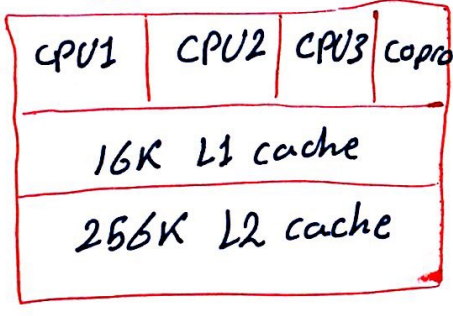 CPU1 CPU2 CPU3 Copro
16K L1 cache
256K L2 cache